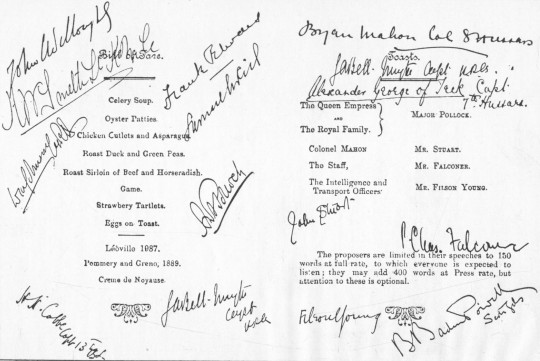 John Willoughby
Bill of Fare.
Frank Edward
Samuel Weil
Celery Soup.
Oyster Patties.
Chicken Cutlets and Asparagus
Roast Duck and Green Peas.
Roast Sirloin of Beef and Horseradish.
Game.
Strawbery Tartlets.
Eggs on Toast.
Léoville 1987.
Pommery and Greno, 1889.
Creme de Noyause
Gaskell-Smyth
Capt
Bryan Mahon Col 8 Hussars
Toasts.
Gaskell-Smyth Capt
Alexander George of Teck Capt.
7th Hussars.
The Queen Empress
AND
The Royal Family.
Major Pollock.
Colonel Mahon Mr. Stuart.
The Staff, Mr. Falconer.
The Intelligence and
Transport Officers Mr. Filson Young.
John Stuart
Chas. Falconer
The proposers are limited in their speeches to 150
words at full rate, to which everyone is expected to
listen; they may add 400 words at Press rate, but
attention to these is optional.
Filson Young
B Baden Powell